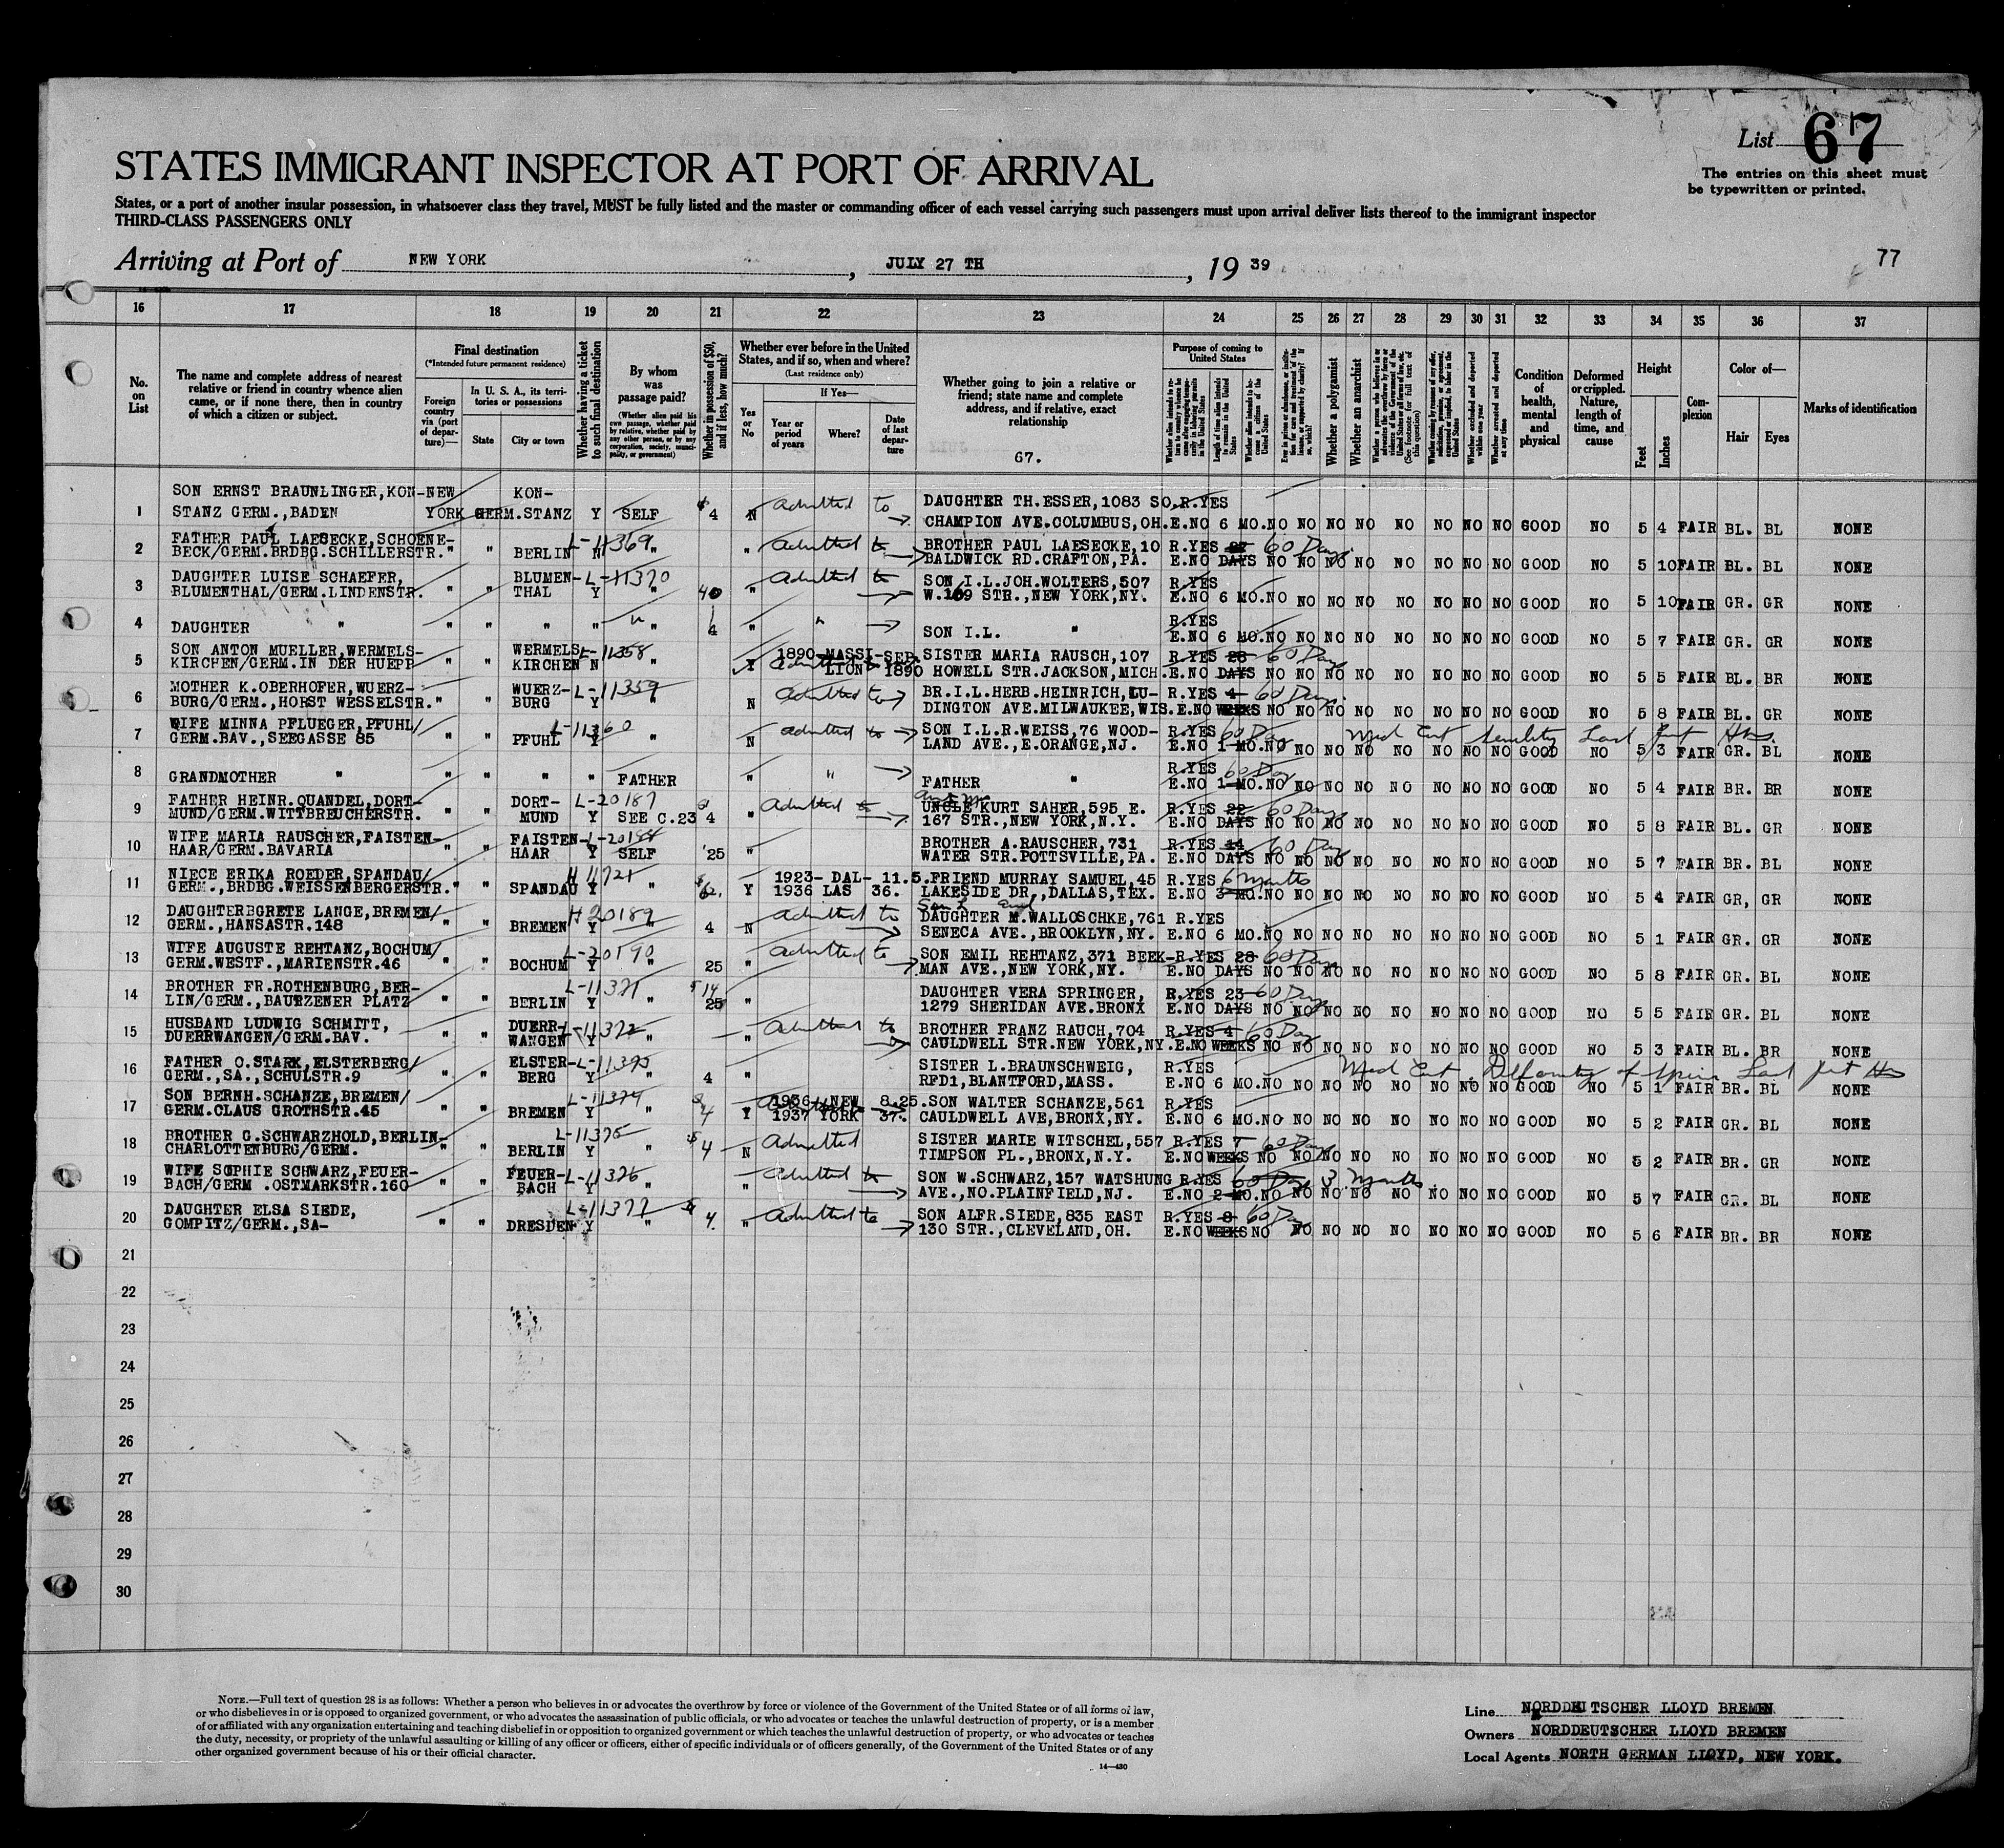 List 67
The entries on this sheet must
be typewritten or printed.
STATES IMMIGRANT INSPECTOR AT PORT OF ARRIVAL
States, or a port of another insular possession, in whatsoever class they travel, MUST be fully listed and the master or commanding officer of each vessel carrying such passengers must upon arrival deliver lists thereof to the immigrant inspector
THIRD-CLASS PASSENGERS ONLY
Arriving at Port of NEW YORK, JULY 27 TH, 19 39
77
16 17 18 19 20 21 22 23 24 25 26 27 28 29 30 31 32 33 34 35 36 37
No. on List
The name and complete address of nearest
relative or friend in country whence alien
came, or if none there, then in country
of which a citizen or subject.
Final destination
(*Intended future permanent residence)
Foreign country via (port of departure)—
In U. S. A., its territories or possessions
State
City or town
Whether having a ticket to such final destination
By whom was passage paid?
(Whether alien paid his own passage, whether paid by relative, whether paid by any other person, or by any corporation, society, municipality, or government)
Whether in possession of $50, and if less, how much?
Whether ever before in the United
States, and if so, when and where?
(Last residence only)
Yes or No
If Yes—
Year or period of years
Where?
Date of last departure
Whether going to join a relative or
friend; state name and complete
address, and if relative, exact
relationship
67.
Purpose of coming to United States
Length of time alien intends to remain in the United States
Whether a polygamist
Whether an anarchist
(See footnote for full text of this question)
Whether excluded and deported within one year
Whether arrested and deported at any time
Condition of health, mental and physical
Deformed or crippled. Nature, length of time, and cause
Height
Feet
Inches
Complexion
Color of—
Hair
Eyes
Marks of identification
1 SON ERNST BRAUNLINGER,KON- NEW KON- Admitted to DAUGHTER TH.ESSER,1083 SO. R.YES
STANZ GERM.,BADEN YORK GERM. STANZ Y SELF $4 N CHAMPION AVE.COLUMBUS,OH. E.NO 6 MO. NO NO NO NO NO NO NO NO GOOD NO 5 4 FAIR BL. BL NONE
2 FATHER PAUL LAESECKE,SCHOENE- L-11369 Admitted to BROTHER PAUL LAESECKE,10 R.YES 60 Days
BECK/GERM.BRDBG.SCHILLERSTR. " " BERLIN N " " BALDWICK RD.CRAFTON,PA. E.NO DAYS NO NO NO NO NO NO NO NO GOOD NO 5 10 FAIR BL. BL NONE
3 DAUGHTER LUISE SCHAEFER, BLUMEN- L-11370 Admitted to SON I.L.JOH.WOLTERS,507 R.YES
BLUMENTHAL/GERM.LINDENSTR. " " THAL Y " 40 " W.169 STR.,NEW YORK,NY. E.NO 6 MO. NO NO NO NO NO NO NO NO GOOD NO 5 10 FAIR GR. GR NONE
4 DAUGHTER " " " " " " 4 " " SON I.L. " R.YES
E.NO 6 MO. NO NO NO NO NO NO NO NO GOOD NO 5 7 FAIR GR. GR NONE
5 SON ANTON MUELLER,WERMELS- WERMELS- L-11358 1890 MASSI- SEP. SISTER MARIA RAUSCH,107 R.YES 28 60 Days
KIRCHEN/GERM.IN DER HUEPP " " KIRCHEN N Y LION 1890 HOWELL STR.JACKSON,MICH. E.NO DAYS NO NO NO NO NO NO NO NO GOOD NO 5 5 FAIR BL. BR NONE
6 MOTHER K.OBERHOFER,WUERZ- WUERZ- L-11359 Admitted to BR.I.L.HERB.HEINRICH,LU- R.YES 4 60 Days
BURG/GERM.,HORST WESSELSTR. " " BURG Y " N DINGTON AVE.MILWAUKEE,WIS. E.NO WEEKS NO NO NO NO NO NO NO NO GOOD NO 5 8 FAIR BL. GR NONE
7 WIFE MINNA PFLUEGER,PFUHL/ L-11360 Admitted to SON I.L.R.WEISS,76 WOOD- R.YES 60 Days Med Cert Senility
GERM.BAV.,SEEGASSE 85 " " PFUHL Y " N LAND AVE.,E.ORANGE,NJ. E.NO 1 MO. NO NO NO NO NO NO NO NO GOOD NO 5 3 FAIR GR. BL NONE
8 GRANDMOTHER " " " " " FATHER " " FATHER " R.YES 60 Day
E.NO 1 MO. NO NO NO NO NO NO NO NO GOOD NO 5 4 FAIR BR. BR NONE
9 FATHER HEINR.QUANDEL,DORT- DORT- L-20187 Admitted to UNCLE KURT SAHER,595 E. R.YES 22 60 Days
MUND/GERM.WITTBREUCHERSTR. " " MUND Y SEE C.23 4 " 167 STR.,NEW YORK,N.Y. E.NO DAYS NO NO NO NO NO NO NO NO GOOD NO 5 8 FAIR BL. GR NONE
10 WIFE MARIA RAUSCHER,FAISTEN- FAISTEN- L-20188 BROTHER A.RAUSCHER,731 R.YES 14 60 Days
HAAR/GERM.BAVARIA " " HAAR Y SELF 25 " WATER STR.POTTSVILLE,PA. E.NO DAYS NO NO NO NO NO NO NO NO GOOD NO 5 7 FAIR BR. BL NONE
11 NIECE ERIKA ROEDER,SPANDAU/ 1923- DAL- 11.5. FRIEND MURRAY SAMUEL,45 R.YES 6 months
GERM.,BRDBG.WEISSENBERGERSTR. " " SPANDAU Y " Y 1936 LAS 36. LAKESIDE DR.,DALLAS,TEX. E.NO 3 MO. NO NO NO NO NO NO NO NO GOOD NO 5 4 FAIR GR, GR NONE
12 DAUGHTERBGRETE LANGE,BREMEN/ H 20189 Admitted to DAUGHTER M.WALLOSCHKE,761 R.YES
GERM.,HANSASTR.148 " " BREMEN Y " 4 N SENECA AVE.,BROOKLYN,NY. E.NO 6 MO. NO NO NO NO NO NO NO NO GOOD NO 5 1 FAIR GR. GR NONE
13 WIFE AUGUSTE REHTANZ,BOCHUM/ L-20190 Admitted to SON EMIL REHTANZ,371 BEEK- R.YES 28 60 Days
GERM.WESTF.,MARIENSTR.46 " " BOCHUM Y " 25 " MAN AVE.,NEW YORK,NY. E.NO DAYS NO NO NO NO NO NO NO NO GOOD NO 5 8 FAIR GR. BL NONE
14 BROTHER FR.ROTHENBURG,BER- L-11371 $14 DAUGHTER VERA SPRINGER, R.YES 23 60 Days
LIN/GERM.,BAUTZENER PLATZ " " BERLIN Y " 25 " 1279 SHERIDAN AVE.BRONX E.NO DAYS NO NO NO NO NO NO NO NO GOOD NO 5 5 FAIR GR. BL NONE
15 HUSBAND LUDWIG SCHMITT, DUERR- L-11372 Admitted to BROTHER FRANZ RAUCH,704 R.YES 4 60 Day
DUERRWANGEN/GERM.BAV. " " WANGEN Y " " CAULDWELL STR.NEW YORK,NY. E.NO WEEKS NO NO NO NO NO NO NO NO GOOD NO 5 3 FAIR BL. BR NONE
16 FATHER O.STARK,ELSTERBERG/ ELSTER- L-11373 SISTER L.BRAUNSCHWEIG, R.YES Med Cert. Deformity of spine
GERM.,SA.,SCHULSTR.9 " " BERG Y " 4 " RFD1,BLANTFORD,MASS. E.NO 6 MO. NO NO NO NO NO NO NO NO GOOD NO 5 1 FAIR BR. BL NONE
17 SON BERNH.SCHANZE,BREMEN/ L-11374 1936 NEW 8.25. SON WALTER SCHANZE,561 R.YES
GERM.CLAUS GROTHSTR.45 " " BREMEN Y " 4 Y 1937 YORK 37. CAULDWELL AVE,BRONX,NY. E.NO 6 MO. NO NO NO NO NO NO NO NO GOOD NO 5 2 FAIR GR. BL NONE
18 BROTHER G.SCHWARZHOLD,BERLIN- L-11375 Admitted SISTER MARIE WITSCHEL,557 R.YES 7 60 Days
CHARLOTTENBURG/GERM. " " BERLIN Y " $4 N TIMPSON PL.,BRONX,N.Y. E.NO WEEKS NO NO NO NO NO NO NO NO GOOD NO 5 2 FAIR BR. GR NONE
19 WIFE SOPHIE SCHWARZ,FEUER- FEUER- L-11376 Admitted to SON W.SCHWARZ,157 WATSHUNG R.YES 60 Days 3 Months
BACH/GERM .OSTMARKSTR.160 " " BACH Y " " AVE.,NO.PLAINFIELD,NJ. E.NO 2 MO. NO NO NO NO NO NO NO NO GOOD NO 5 7 FAIR GR. BL NONE
20 DAUGHTER ELSA SIEDE, L-11377 Admitted to SON ALFR.SIEDE,835 EAST R.YES 8 60 Days
GOMPITZ/GERM.,SA- " " DRESDEN Y " 4. " 130 STR.,CLEVELAND,OH. E.NO WEEKS NO NO NO NO NO NO NO NO GOOD NO 5 6 FAIR BR. BR NONE
21
22
23
24
25
26
27
28
29
30
NOTE.—Full text of question 28 is as follows: Whether a person who believes in or advocates the overthrow by force or violence of the Government of the United States or of all forms of law,
or who disbelieves in or is opposed to organized government, or who advocates the assassination of public officials, or who advocates or teaches the unlawful destruction of property, or is a member
of or affiliated with any organization entertaining and teaching disbelief in or opposition to organized government or which teaches the unlawful destruction of property, or who advocates or teaches
the duty, necessity, or propriety of the unlawful assaulting or killing of any officer or officers, either of specific individuals or of officers generally, of the Government of the United States or of any
other organized government because of his or their official character.
14—430
Line NORDDEUTSCHER LLOYD BREMEN
Owners NORDDEUTSCHER LLOYD BREMEN
Local Agents NORTH GERMAN LLOYD, NEW YORK.